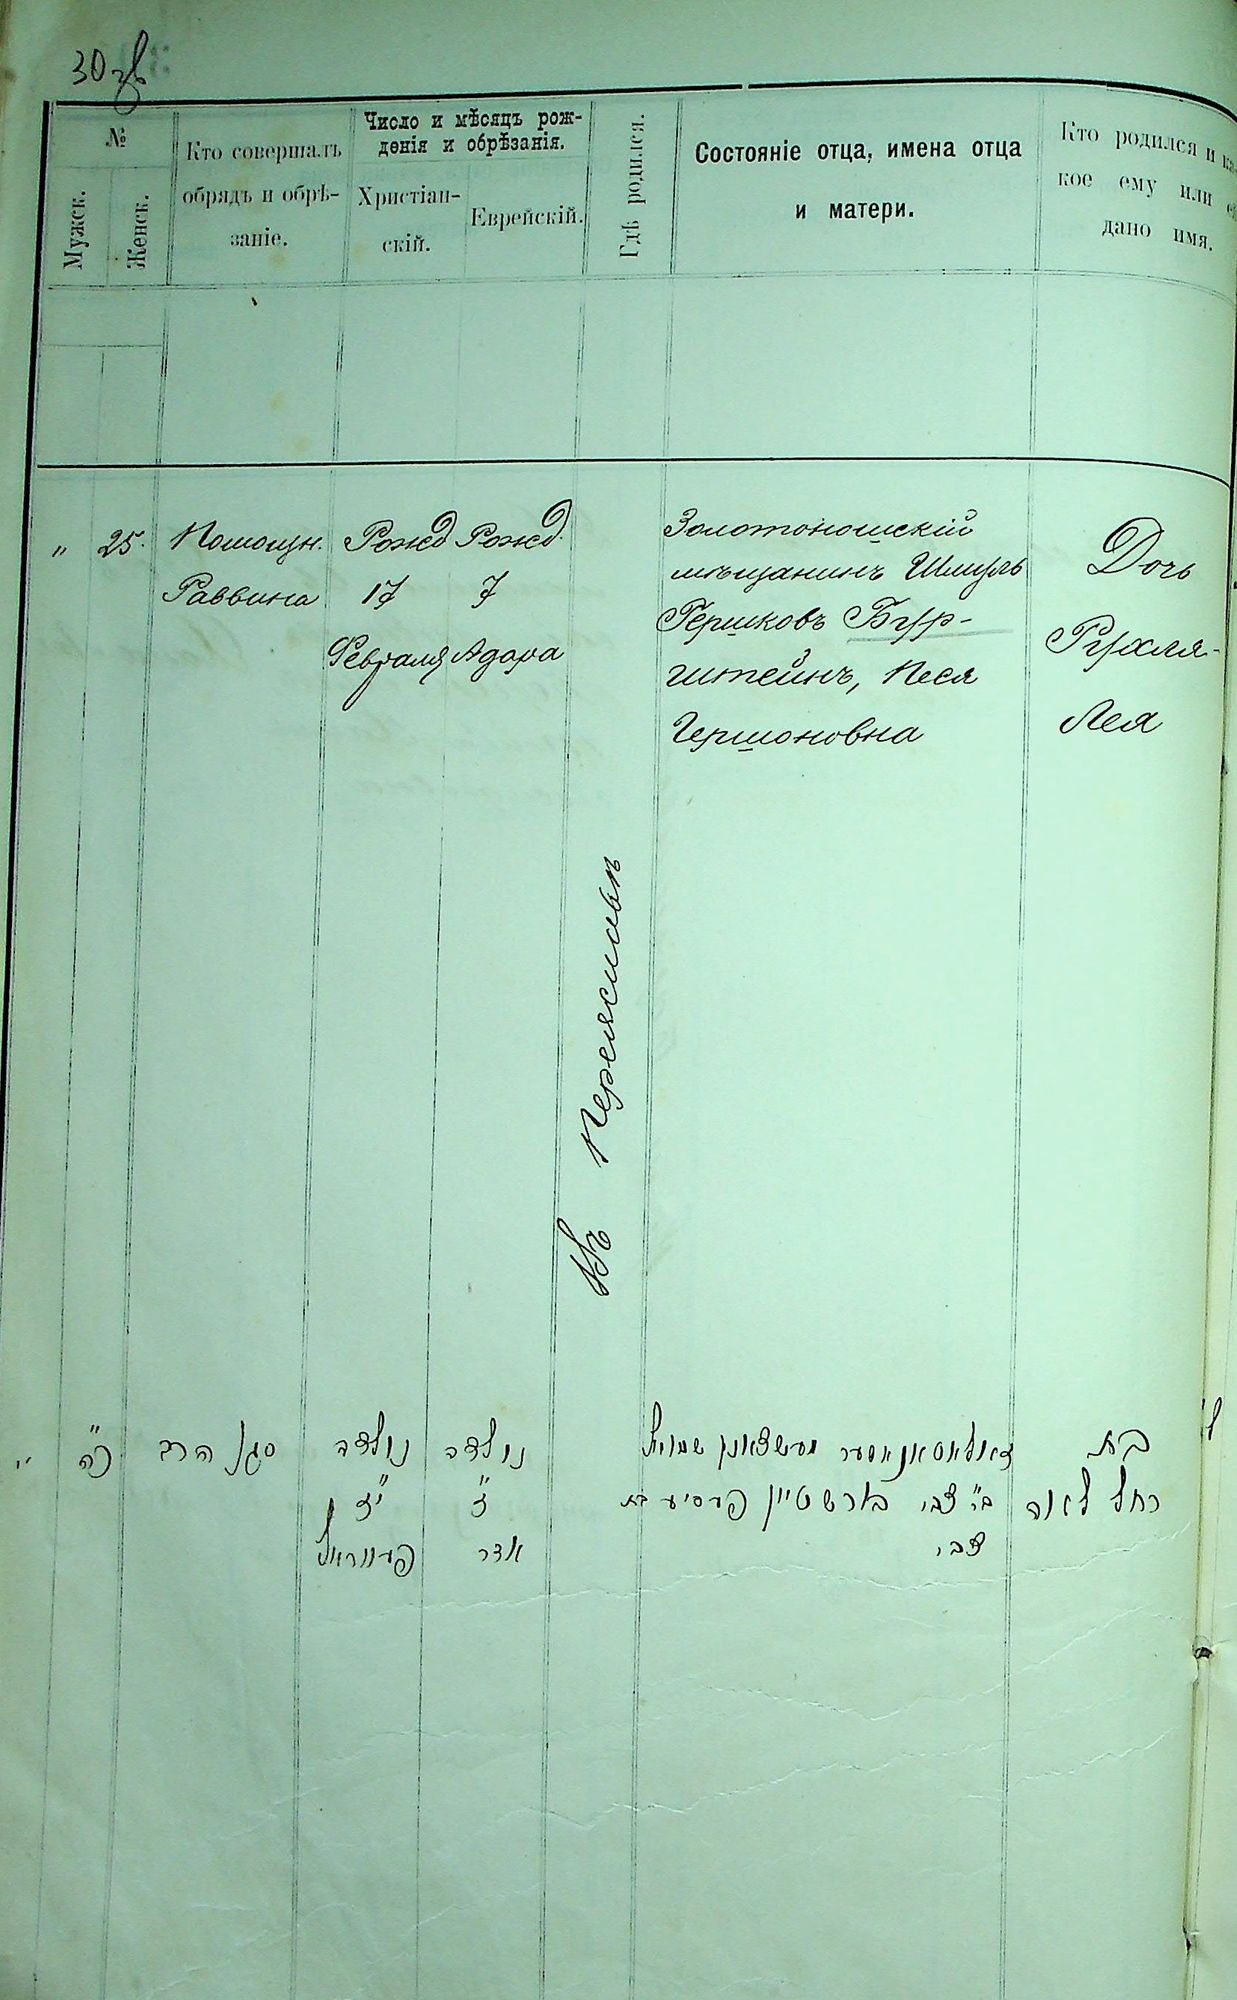 30 об
№
Мужск.
Женск.
Кто совершалъ
обрядъ и обрѣ-
заніе.
Число и мѣсяцъ рож-
денія и обрѣзанія.
Христіан-
скій.
Еврейскій.
Гдѣ родился.
Состояніе отца, имена отца
и матери.
Кто родился и ка-
кое ему или
дано имя.
" 25.
Помощн.
Раввина
Рожд
17
Февраля
Рожд.
7
Адара
Въ Переяславѣ
Золотоношскій
мѣщанинъ Шмуль
Гершковъ Бур-
штейнъ, Песя
Гершоновна
Дочь
Рухля-
Лея
" כ"ה
סגן הרב
נולדה
י"ז
פעווראל
נולדה
ז"
אדר
מעשצאנין שמואל
ב"ר צבי בורשטיין פעסיע בת
צבי
בת
רחל לאה